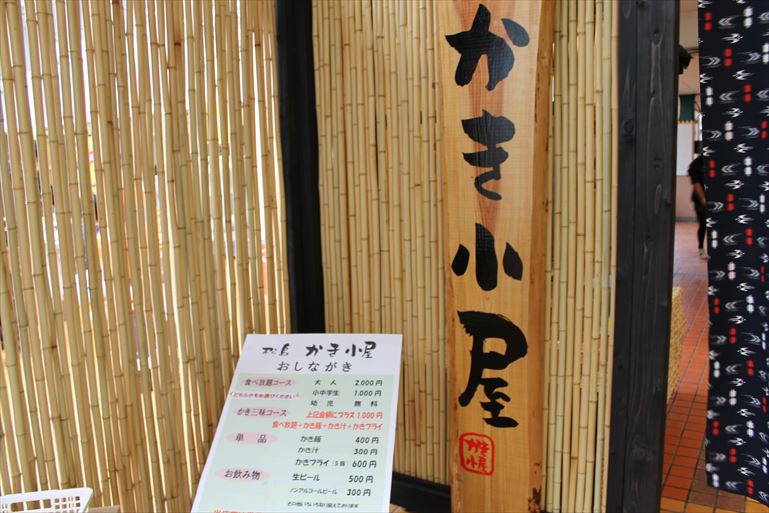 かき小屋
かき
小屋
松島 かき小屋
おしながき
食べ放題コース 大人 2.000円
*どちらかをお選びください* 小中学生 1.000円
幼児 無料
かき三昧コース 上記金額にプラス1.000円
食べ放題+かき飯+かき汁+かきフライ
単品 かき飯 400円
かき汁 300円
かきフライ(5個) 600円
お飲み物 生ビール 500円
ノンアルコールビール 300円
その他いろいろ取り揃えております